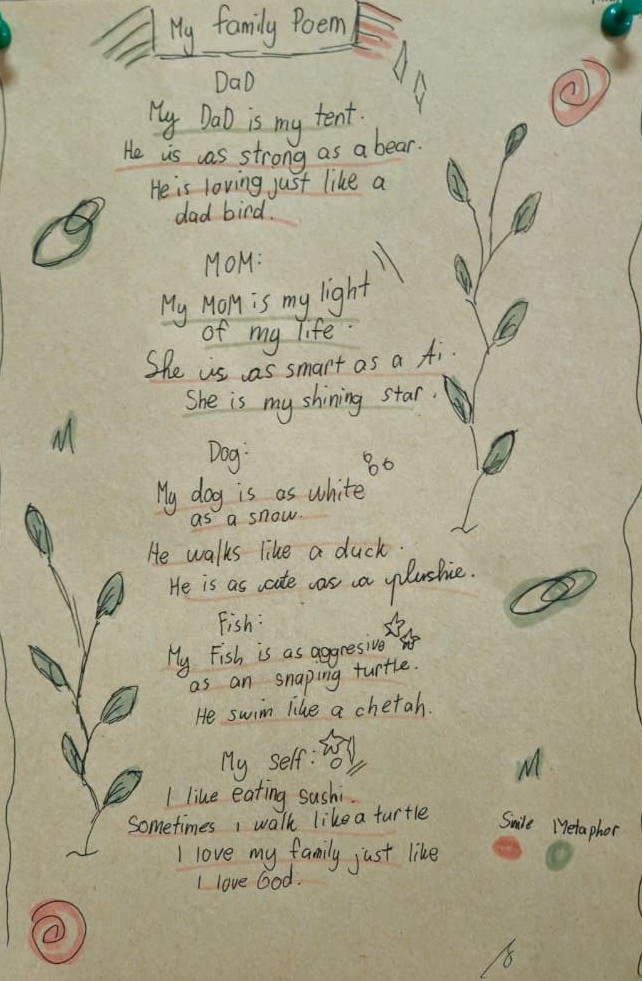 My family Poem
DaD
My DaD is my tent.
He is as strong as a bear.
He is loving just like a
dad bird.
MOM:
My MOM is my light
of my life.
She is as smart as a Ai.
She is my shining star.
Dog:
My dog is as white
as a snow.
He walks like a duck.
He is as cute as a plushie.
Fish:
My Fish is as aggresive
as an snaping turtle.
He swim like a chetah.
My self:
I like eating sushi.
Sometimes i walk like a turtle
I love my family just like
I love God.
Smile Metaphor